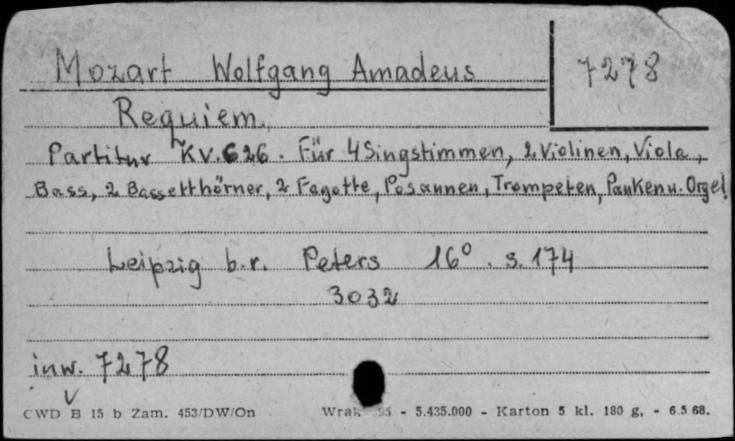 Mozart Wolfgang Amadeus
7278
Requiem.
Partitur KV. 626. Für 4 Singstimmen, 2 Violinen, Viola,
Bass, 2 Bassetthörner, 2 Fagotte, Posaunen, Trompeten, Pauken u. Orgel
Leipzig b.r. Peters 16° . s. 174
3032
inw. 7278
CWD B 15 b Zam. 453/DW/On - 5.435.000 - Karton 5 kl. 180 g, - 6.5.68.